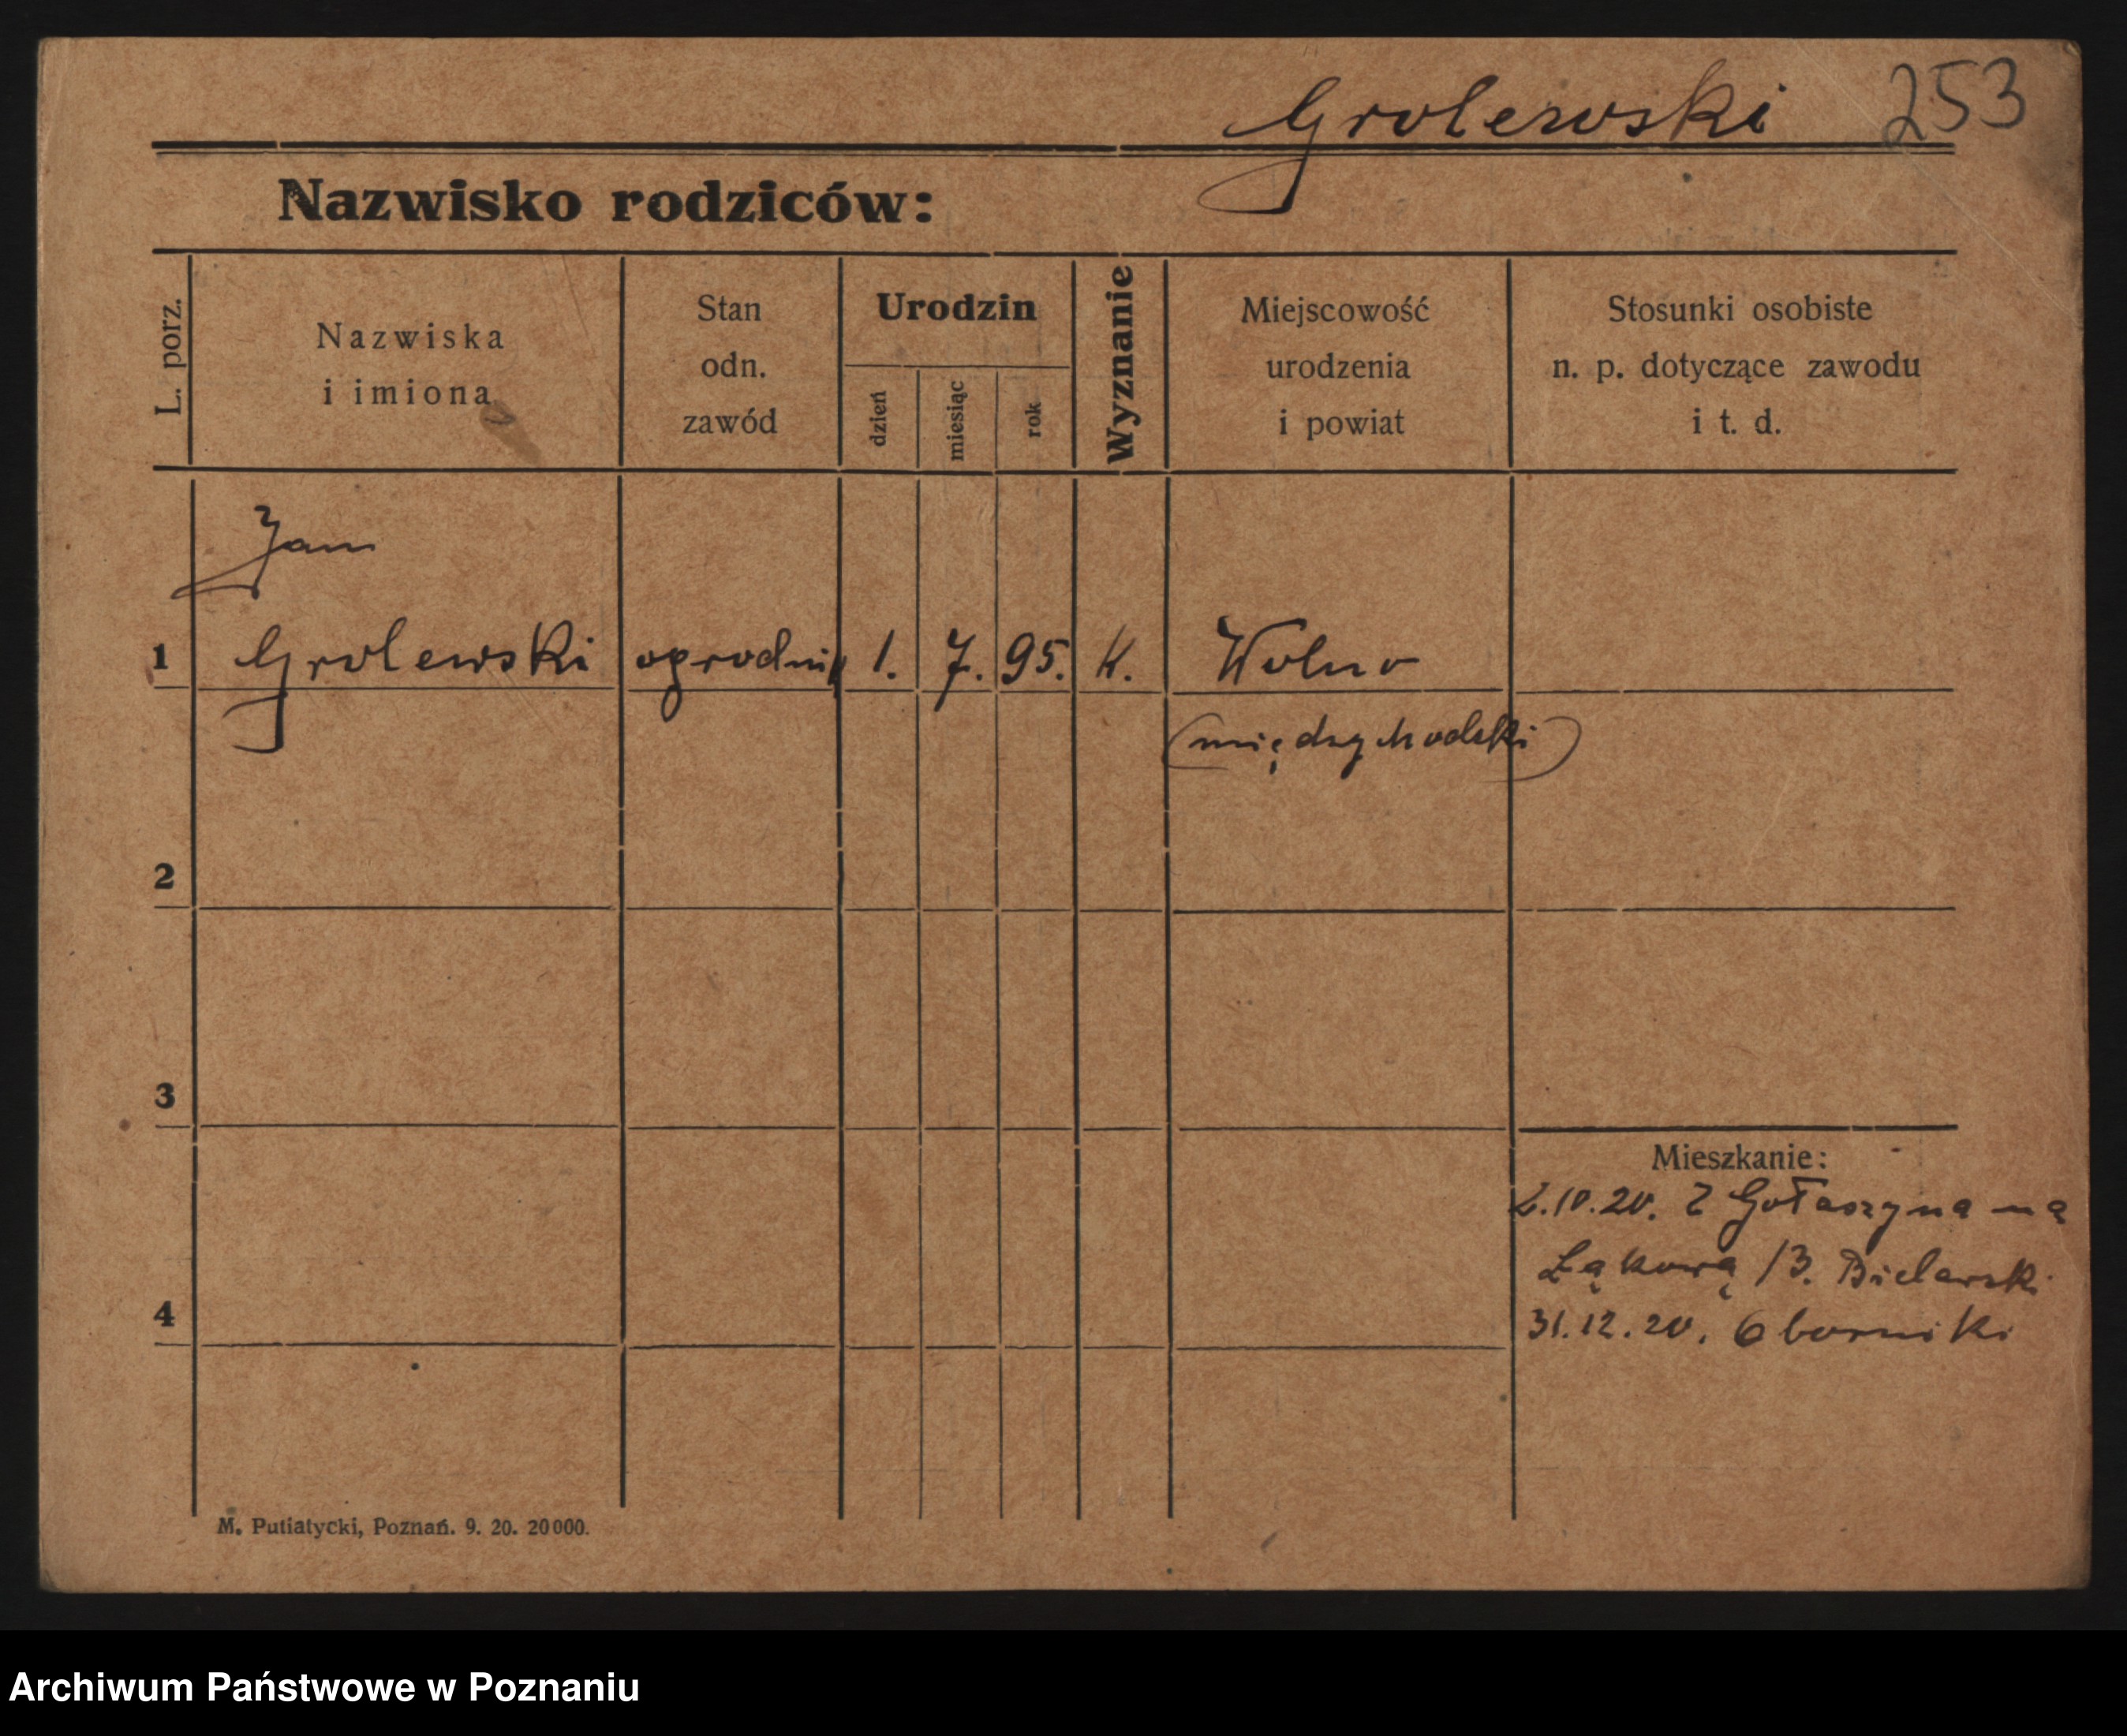 Grolewski 253
Nazwisko rodziców:
L. porz.
Nazwiska
i imiona
Stan
odn.
zawód
Urodzin
dzień
miesiąc
rok
Wyznanie
Miejscowość
urodzenia
i powiat
Stosunki osobiste
n. p. dotyczące zawodu
i t. d.
Jan
1 Grolewski ogrodnik 1. 7. 95. K. Wolno
(międzychodski)
2
3
Mieszkanie:
2.10.20. Z Gołaszyna na
Łąkową 13. Bielawski
4
31.12.20. Oborniki
M. Putiatycki, Poznań. 9. 20. 20000.
Archiwum Państwowe w Poznaniu